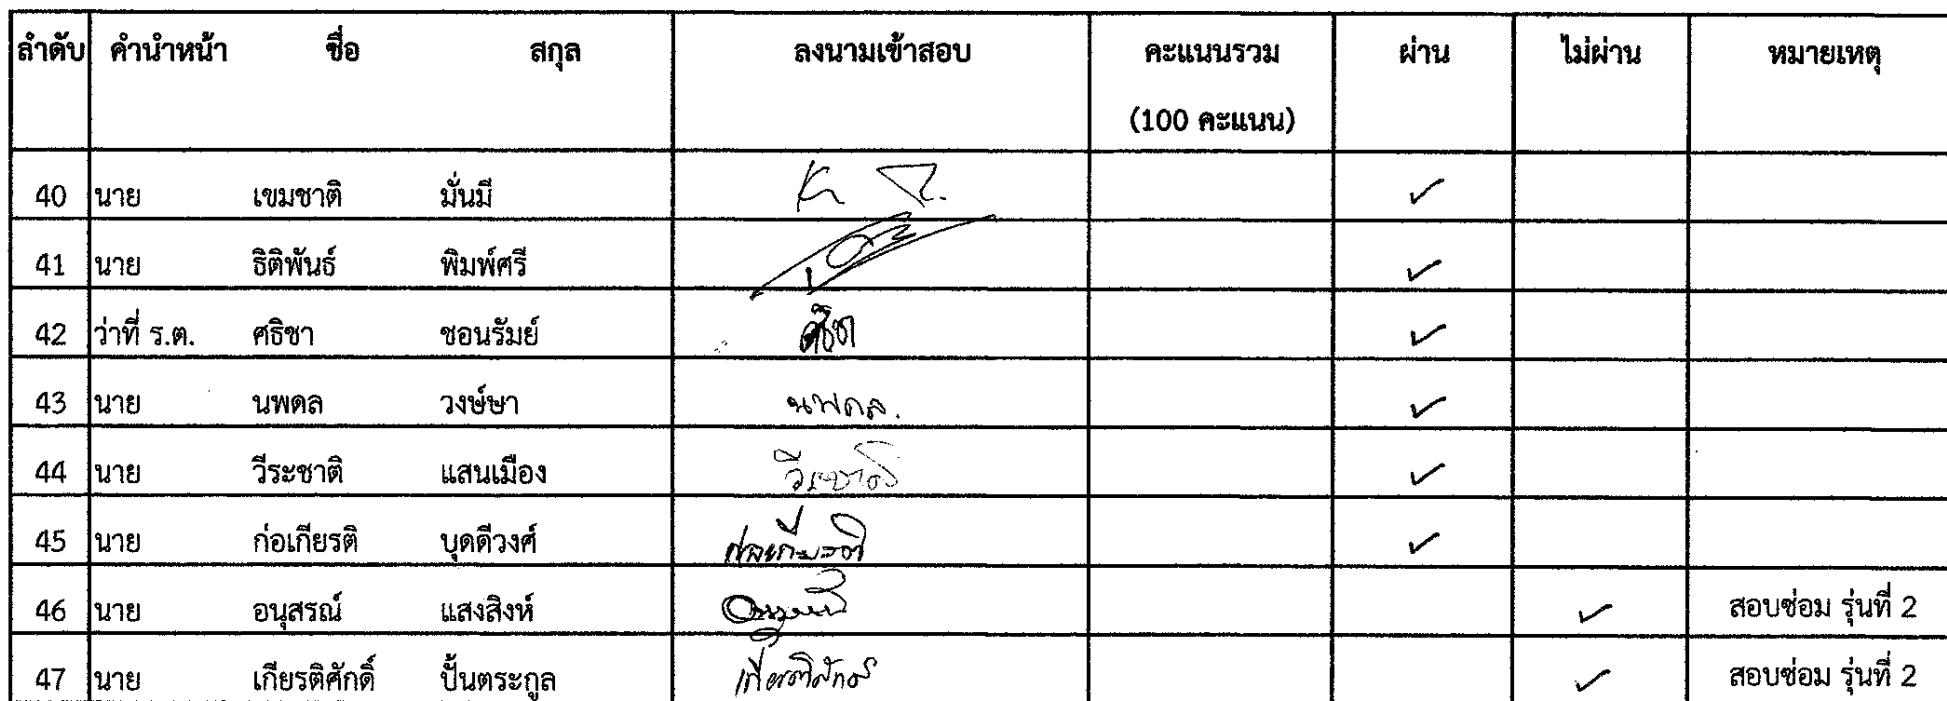 ลำดับ คำนำหน้า ชื่อ สกุล ลงนามเข้าสอบ คะแนนรวม ผ่าน ไม่ผ่าน หมายเหตุ
(100 คะแนน)
40 นาย เขมชาติ มั่นมี ✓
41 นาย ธิติพันธ์ พิมพ์ศรี ✓
42 ว่าที่ ร.ต. ศธิชา ชอนรัมย์ ✓
43 นาย นพดล วงษ์ษา นพดล. ✓
44 นาย วีระชาติ แสนเมือง วีระชาติ ✓
45 นาย ก่อเกียรติ บุดดีวงศ์ ก่อเกียรติ ✓
46 นาย อนุสรณ์ แสงสิงห์ ✓ สอบซ่อม รุ่นที่ 2
47 นาย เกียรติศักดิ์ ปั้นตระกูล เกียรติศักดิ์ ✓ สอบซ่อม รุ่นที่ 2